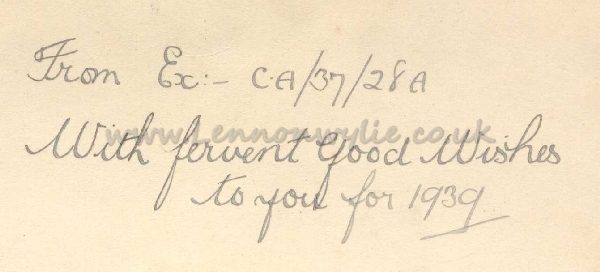 From Ex:- C.A/37/28A
www.Lennonwylie.co.uk
With fervent Good Wishes
to you for 1939